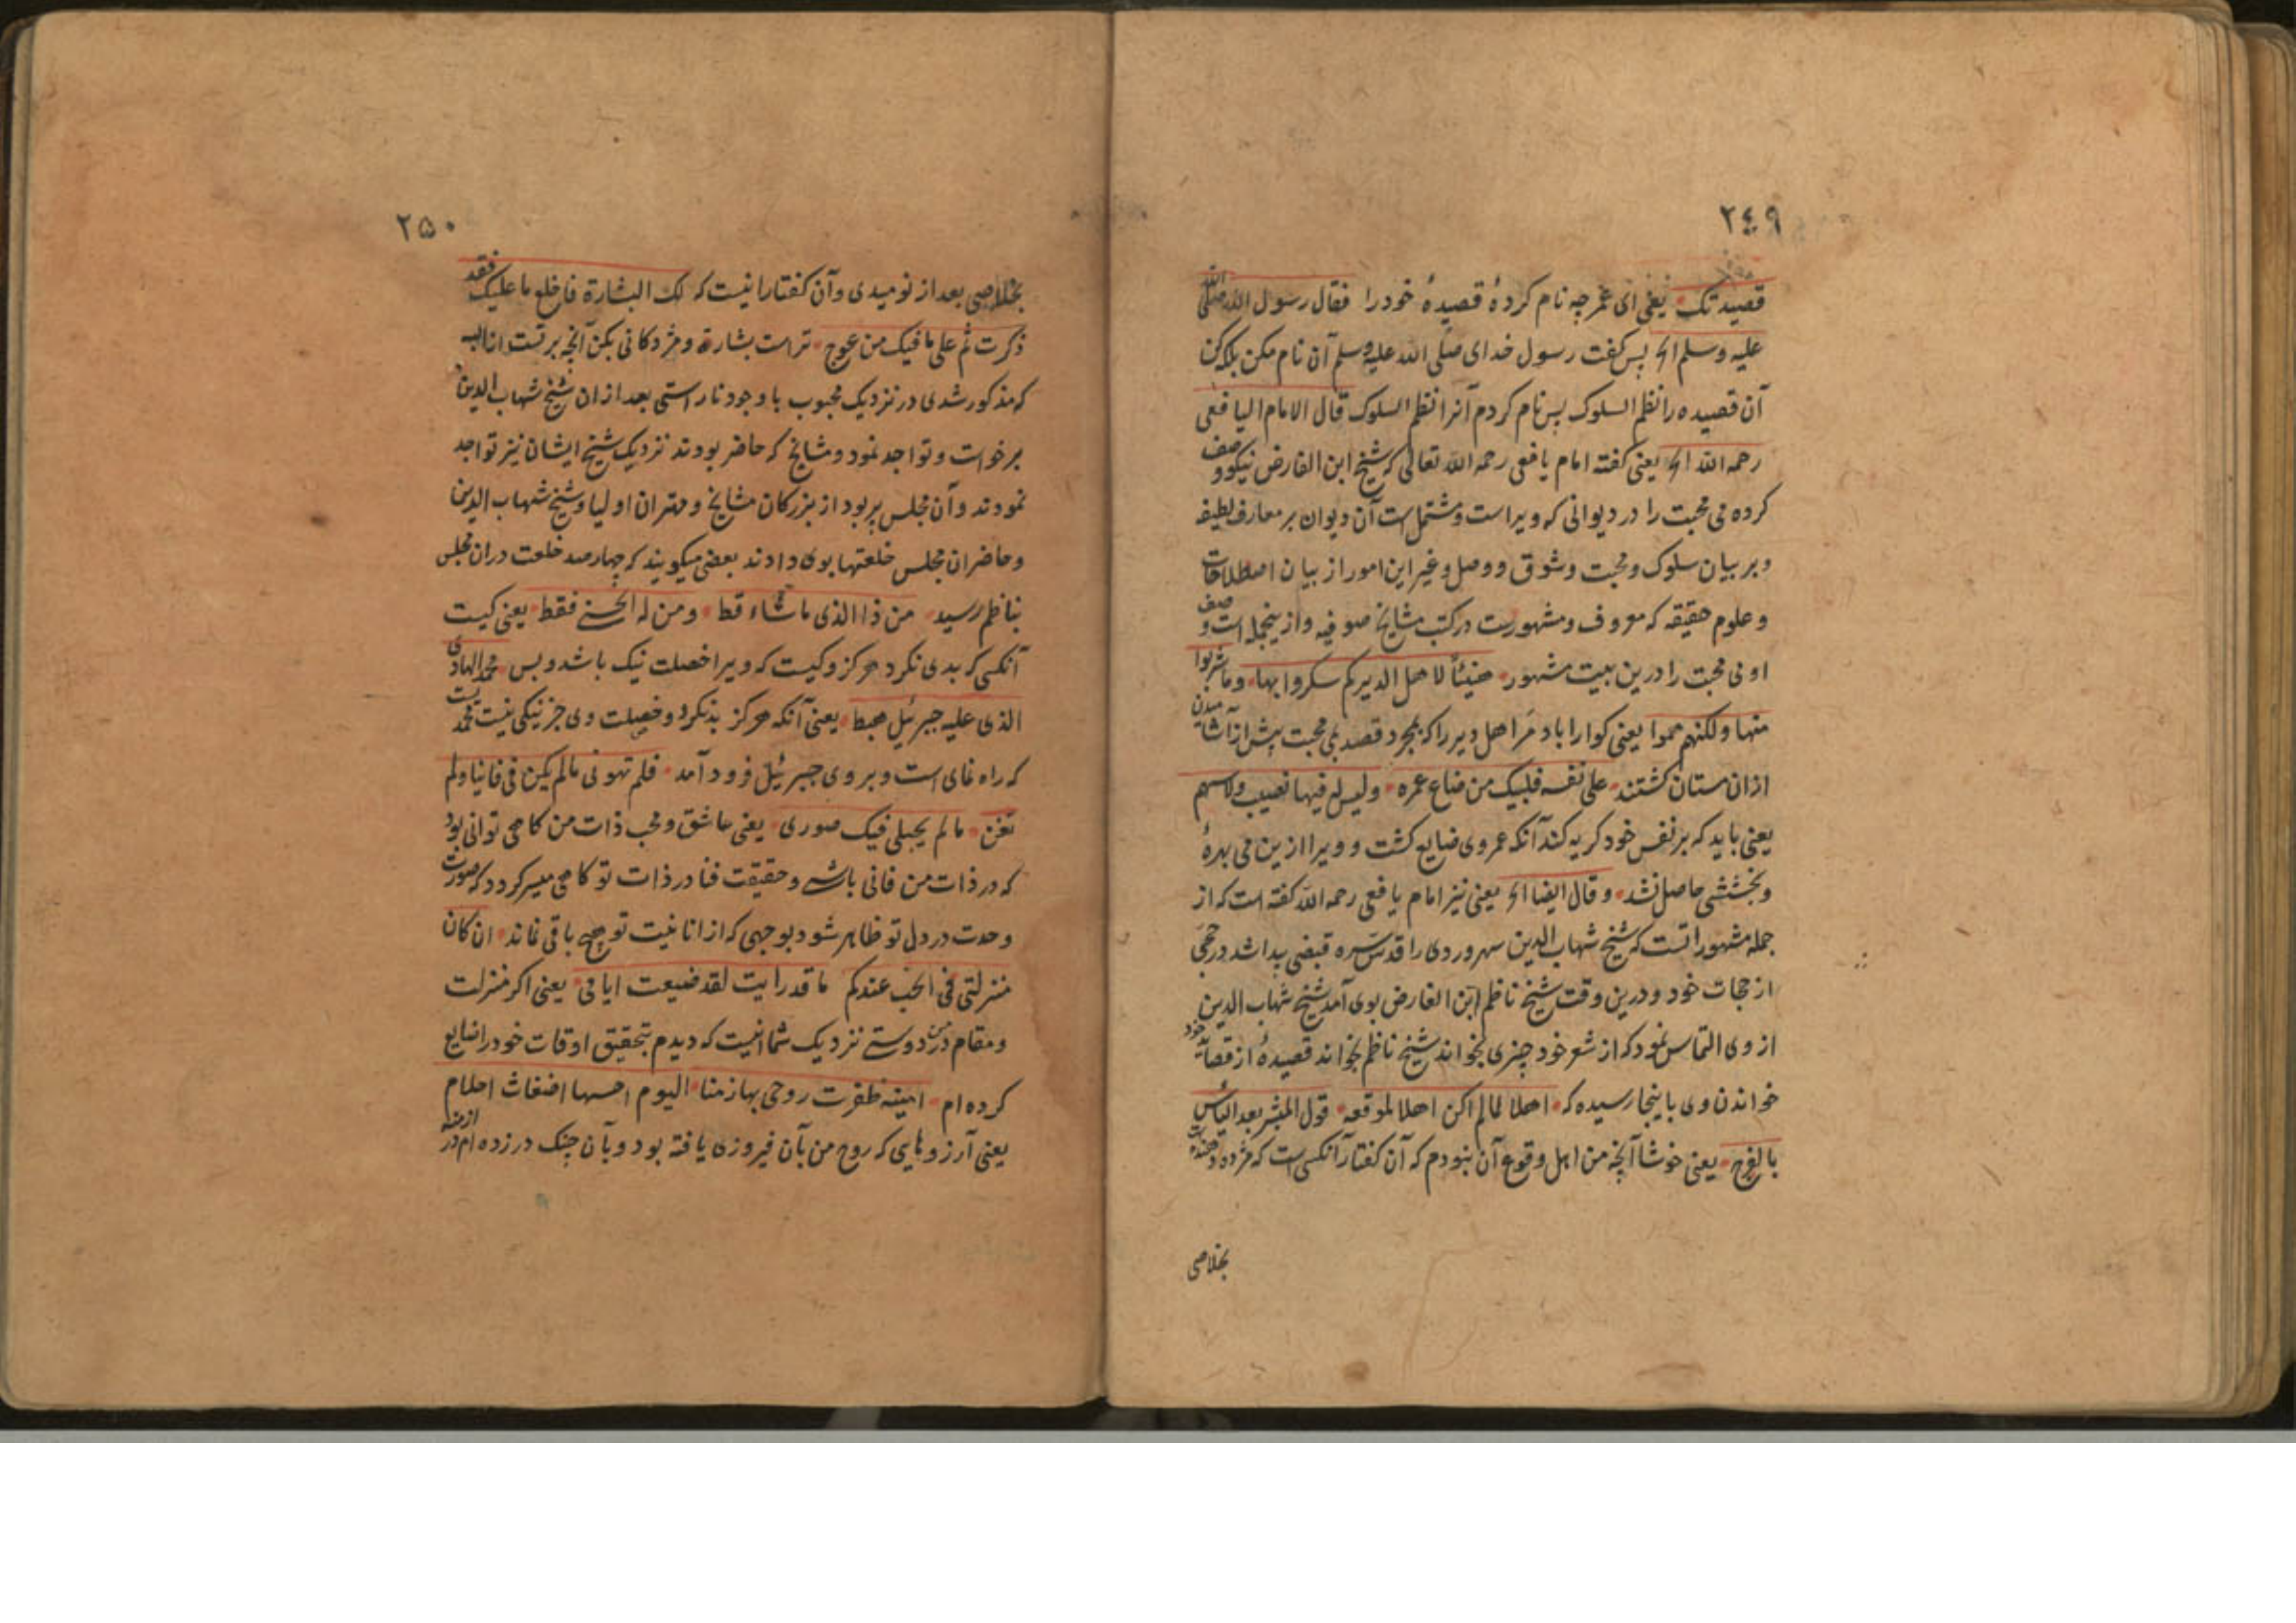 ٢٤٩
قصیدتک یعنی ای عمر چه نام کردهٔ قصیدهٔ خود را فقال رسول الله صلی الله
علیه وسلم الخ پس کفت رسول خدای صلی الله علیه وسلم آن نام مکن بلکه کن
آن قصیده را نظم السلوک پس نام کردم آنرا نظم السلوک قال الامام الیافعی
رحمه الله الخ یعنی کفته امام یافعی رحمه الله تعالی که شیخ ابن الفارض نیکو وصف
کرده می محبت را در دیوانی که ویراست و مشتمل است آن دیوان بر معارف لطیفه
و بر بیان سلوک و محبت و شوق و وصل و غیر این امور از بیان اصطلاحات
و علوم حقیقه که معروف و مشهورست در کتب مشایخ صوفیه و ازینجمله است وصف
او می محبت را درین بیت مشهور هنیئاً لاهل الدیر کم سکروا بها وما شربوا
منها ولکنهم هموا یعنی کوارا باد مر اهل دیر را که بمجرد قصد می محبت پیش از آشامیدن
ازان مستان کشتند علی نفسه فلیبک من ضاع عمره ولیس له فیها نصیب ولا سهم
یعنی باید که بر نفس خود کریه کند آنکه عمر وی ضایع کشت و ویرا ازین می بهرهٔ
و بخششی حاصل نشد وقال ایضا الخ یعنی نیز امام یافعی رحمه الله کفته است که از
جمله مشهور آنست که شیخ شهاب الدین سهروردی را قدس سره قبضی پیدا شد در حجی
از حجات خود و درین وقت شیخ ناظم ابن الفارض بوی آمد شیخ شهاب الدین
از وی التماس نمود که از شعر خود چیزی بخواند شیخ ناظم بخواند قصیدهٔ از قصاید خود
خواندن وی باینجا رسیده که اهلا لما لم اکن اهلا لموقعه قول المبشر بعد الیأس
بالفرج یعنی خوشا آنچه من اهل وقوع آن نبودم که آن کفتار آنکسی است که مژده دهنده است
بخلاصی
٢۵٠
بخلاصی بعد از نومیدی و آن کفتار اینست که لک البشارة فاخلع ما علیک فقد
ذکرت ثم علی ما فیک من عوج تراست بشارة و مژدکانی بکن آنچه بر تست از اینه
که مذکور شدی در نزدیک محبوب با وجود ناراستی بعد ازان شیخ شهاب الدین
برخواست و تواجد نمود و مشایخ که حاضر بودند نزدیک شیخ ایشان نیز تواجد
نمودند و آن مجلس پر بود از بزرکان مشایخ و مهتران اولیا و شیخ شهاب الدین
و حاضران مجلس خلعتها بوی دادند بعضی میکویند که چهار صد خلعت دران مجلس
بناظم رسید من ذا الذی ما ساء قط ومن له الحسنی فقط یعنی کیست
آنکسی که بدی نکرد هرکز و کیست که ویرا خصلت نیک باشد و بس محمد الهادی
الذی علیه جبرئیل هبط یعنی آنکه هرکز بد نکرد و خصلت وی جز نیکی نیست محمد است
که راه نمای است و بر وی جبرئیل فرود آمد فلم تهونی ما لم یکن فی فانیا ولم
تفن ما لم یجتلی فیک صورتی یعنی عاشق و محب ذات من کاهی توانی بود
که در ذات من فانی باشی و حقیقت فنا در ذات تو کاهی میسر کردد که صورت
وحدت در دل تو ظاهر شود بوجهی که از انانیت تو هیچ باقی نماند ان کان
منزلتی فی الحب عندکم ما قد رایت لقد ضیعت ایامی یعنی اکر منزلت
و مقام من در دوستی نزدیک شما اینست که دیدم بتحقیق اوقات خود را ضایع
کرده ام امنیة ظفرت روحی بها زمنا الیوم احسبها اضغاث احلام
یعنی آرزوهایی که روح من بآن فیروزی یافته بود و بآن چنک در زده ام در ازمنه